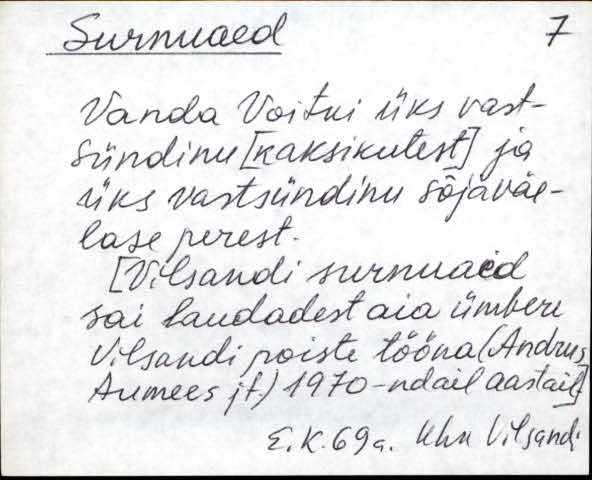 Surnuaed 7
Vanda Voitki üks vast-
sündinu [kaksikutest] ja
üks vastsündinu sõjaväe-
lase perest.
[Vilsandi surnuaed
sai laudadest aia ümber
Vilsandi poiste tööna (Andrus
Aumees jt.) 1970-ndail aastail]
E.K. 69 a. Khk Vilsandi